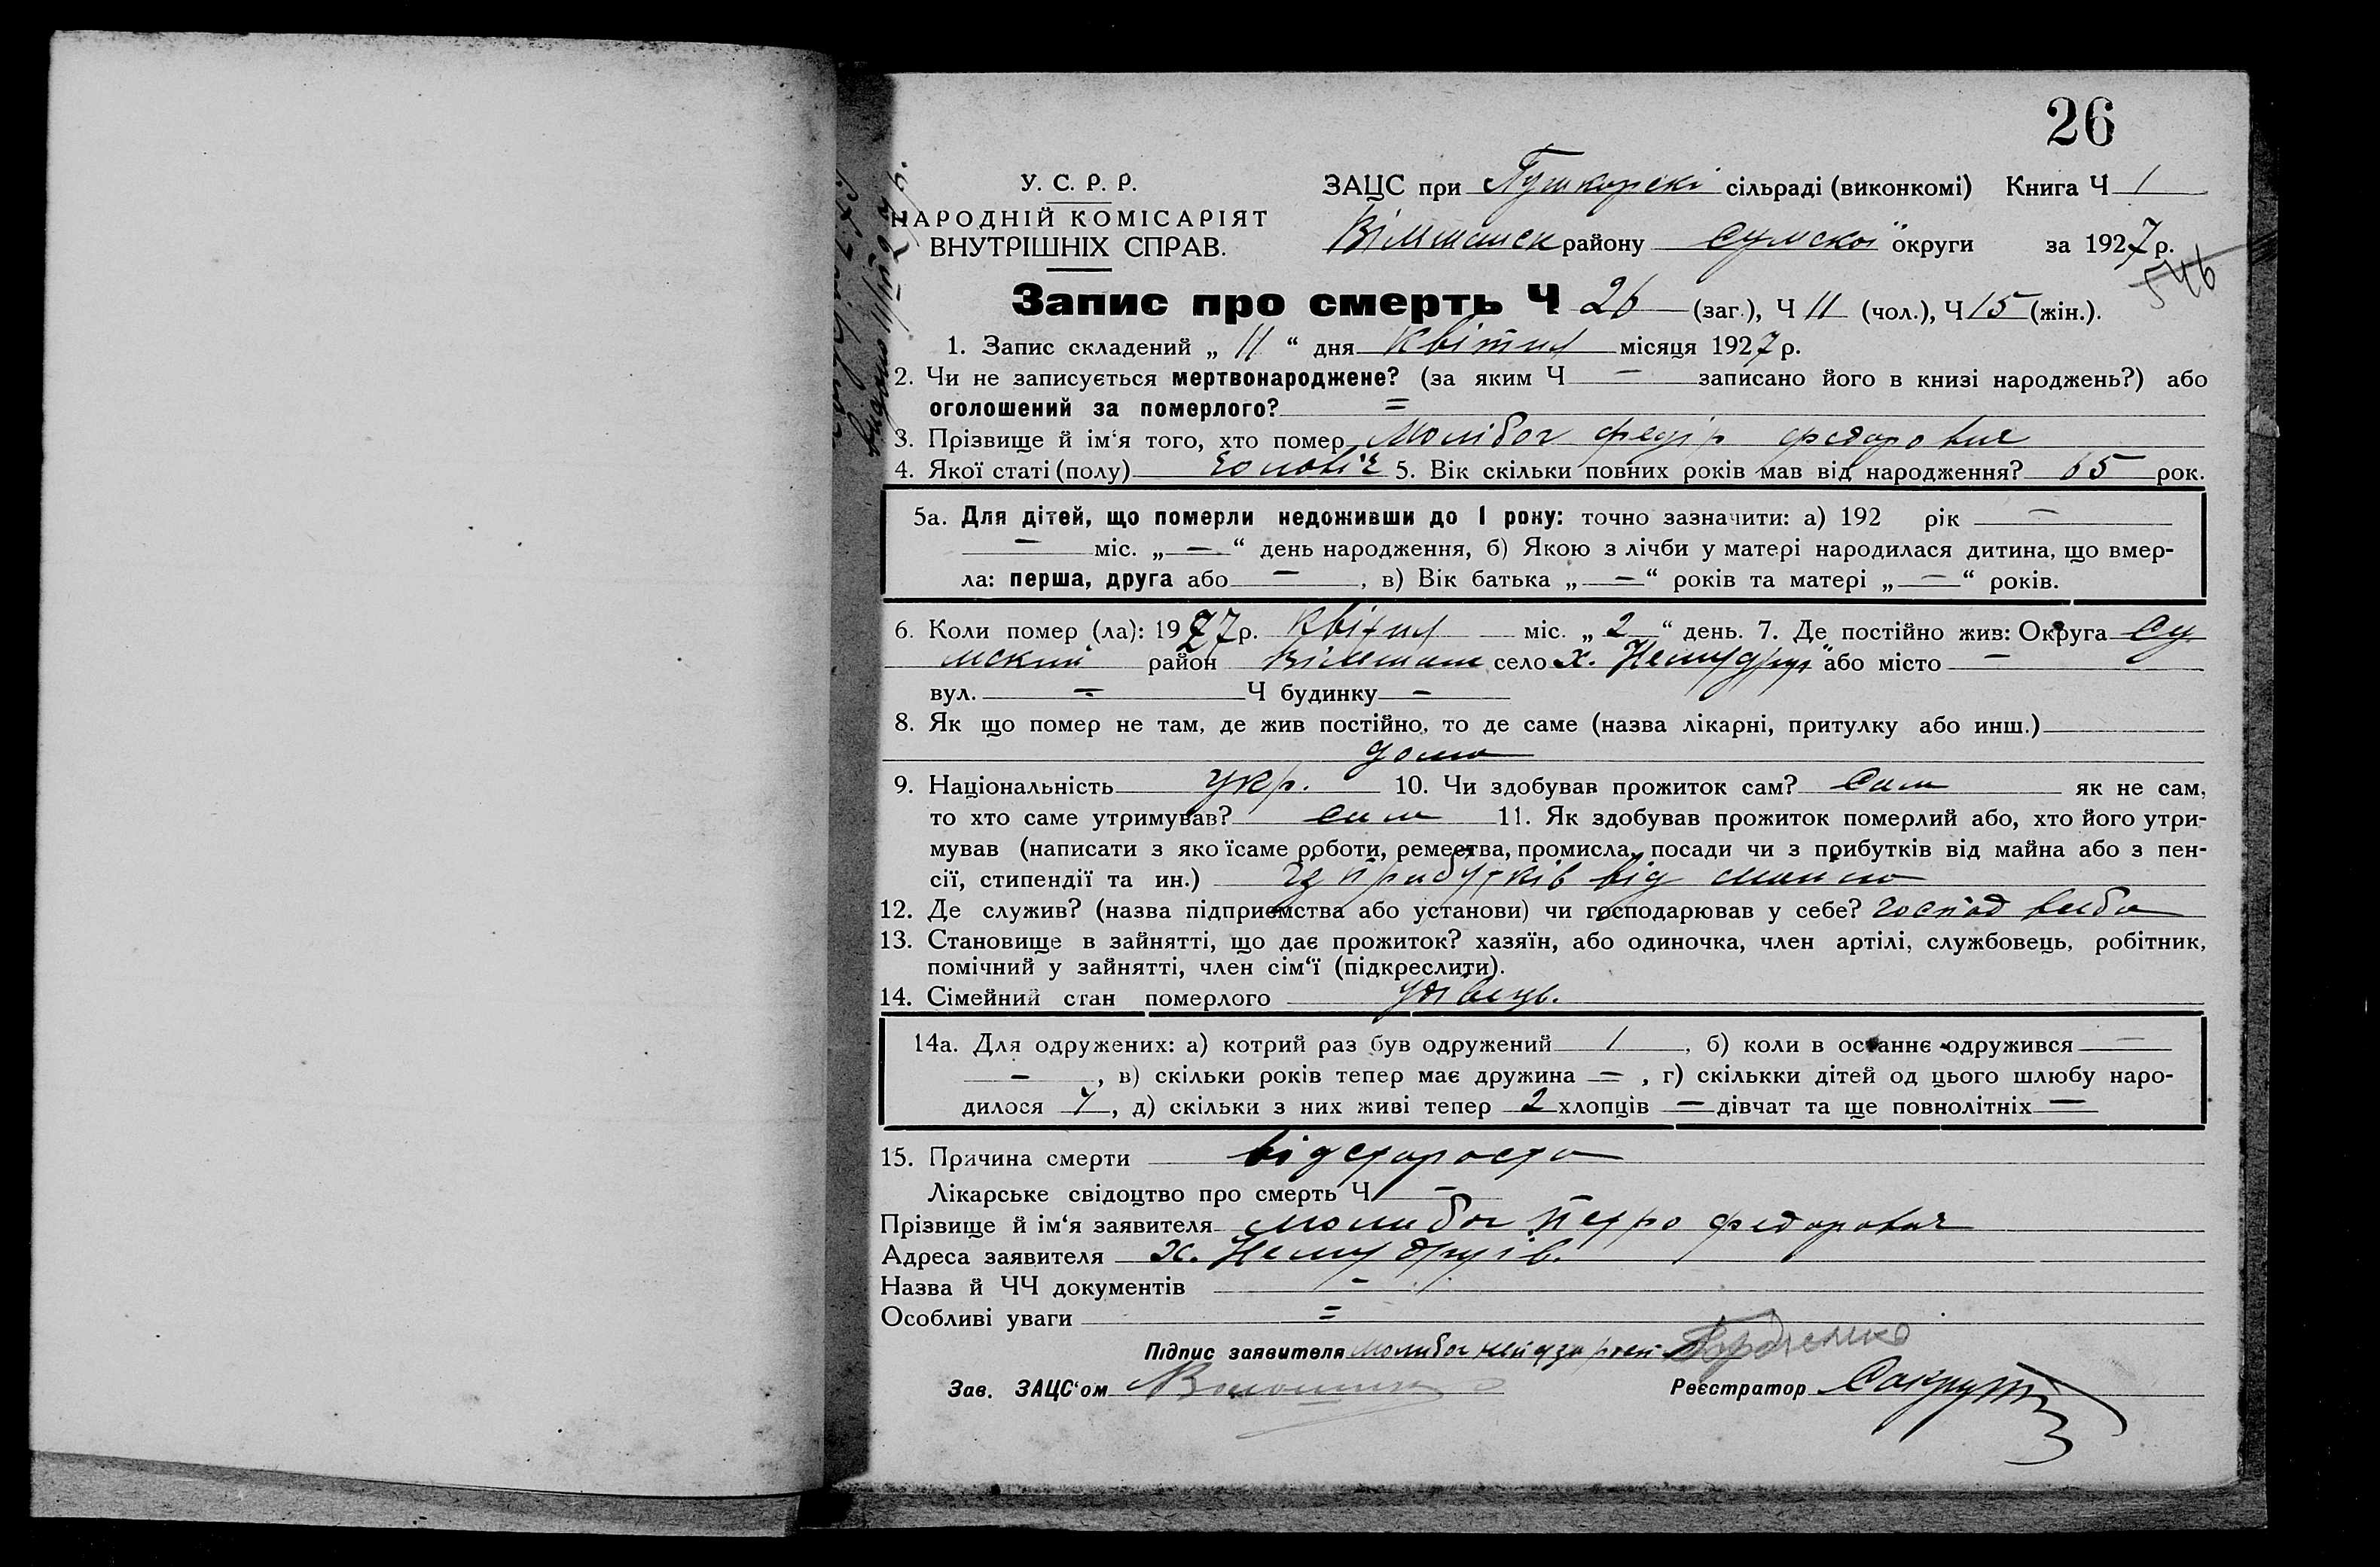 26
У. С. Р. Р.
НАРОДНІЙ КОМІСАРІЯТ
ВНУТРІШНІХ СПРАВ.
ЗАЦС при Пушкарскі сільраді (виконкомі) Книга Ч 1
району Сумскої округи за 1927 р.
546
Запис про смерть Ч 26 (заг.), Ч 11 (чол.), Ч 15 (жін.).
1. Запис складений „ 11 “ дня Квітня місяця 1927 р.
2. Чи не записується мертвонароджене? (за яким Ч — записано його в книзі народжень?) або
оголошений за померлого? =
3. Прізвище й ім‘я того, хто помер Молибог Федір Федорович
4. Якої статі (полу) чоловіч 5. Вік скільки повних років мав від народження? 65 рок.
5а. Для дітей, що померли недоживши до 1 року: точно зазначити: а) 192 рік —
— міс. „ — “ день народження, б) Якою з лічби у матері народилася дитина, що вмер-
ла: перша, друга або — , в) Вік батька „ — “ років та матері „ — “ років.
6. Коли помер (ла): 1927 р. Квітня міс. „ 2 “ день. 7. Де постійно жив: Округа Су
мский район село х. або місто —
вул. = Ч будинку —
8. Як що помер не там, де жив постійно, то де саме (назва лікарні, притулку або инш.)
дома
9. Національність укр. 10. Чи здобував прожиток сам? Сам як не сам,
то хто саме утримував? сам 11. Як здобував прожиток померлий або, хто його утри-
мував (написати з якоїсаме роботи, ремества, промисла, посади чи з прибутків від майна або з пен-
сії, стипендії та ин.) із прибутків від майна
12. Де служив? (назва підприємства або установи) чи господарював у себе? господ
13. Становище в зайнятті, що дає прожиток? хазяїн, або одиночка, член артілі, службовець, робітник,
помічний у зайнятті, член сім‘ї (підкреслити).
14. Сімейний стан померлого удівець.
14а. Для одружених: а) котрий раз був одружений 1 , б) коли в останнє одружився —
— , в) скільки років тепер має дружина — , г) скількки дітей од цього шлюбу наро-
дилося 7 , д) скільки з них живі тепер 2 хлопців — дівчат та ще повнолітніх —
15. Причина смерти від старости
Лікарське свідоцтво про смерть Ч —
Прізвище й ім‘я заявителя Молибог Петро Федорович
Адреса заявителя х. Немудруів.
Назва й ЧЧ документів —
Особливі уваги =
Підпис заявителя Молибог
Зав. ЗАЦС‘ом
Реєстратор